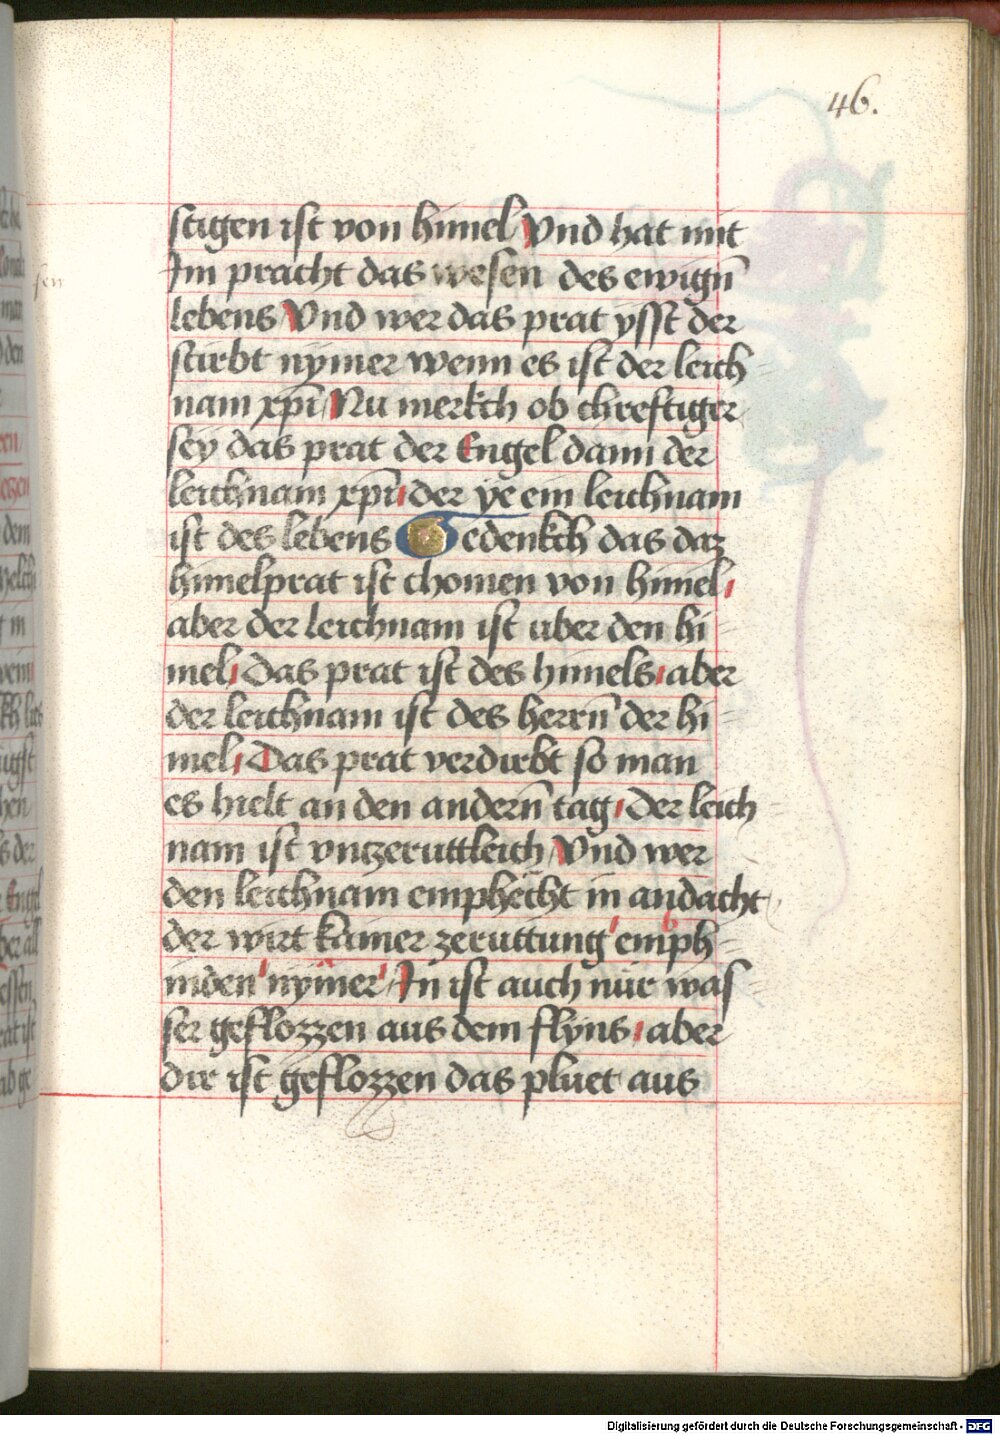 46.
stigen ist von himel Vnd hat mit
Im pracht das wesen des ewign̄
lebens Vnd wer das prat ysst der
stirbt nymer wenn es ist der leich=
nam xp̄i Nu merkch ob chreftiger
sey das prat der Engel dann der
leichnam xp̄i der ye ein leichnam
ist des lebens Gedenkch das daz
himelprat ist chomen von himel
aber der leichnam ist uber den hi=
mel Das prat ist des himels aber
der leichnam ist des herrn̄ der hi=
mel Das prat verdirbt so man
es hielt an den andern̄ tag Der leich
nam ist vnczeruttleich Vnd wer
den leichnam emphecht in andacht
der wirt kainer zeruttung emph=
inden nymer In ist auch nur was=
ser geflozzen aus dem flyns aber
dir ist geflozzen das pluet aus
sen
Digitalisierung gefördert durch die Deutsche Forschungsgemeinschaft - DFG